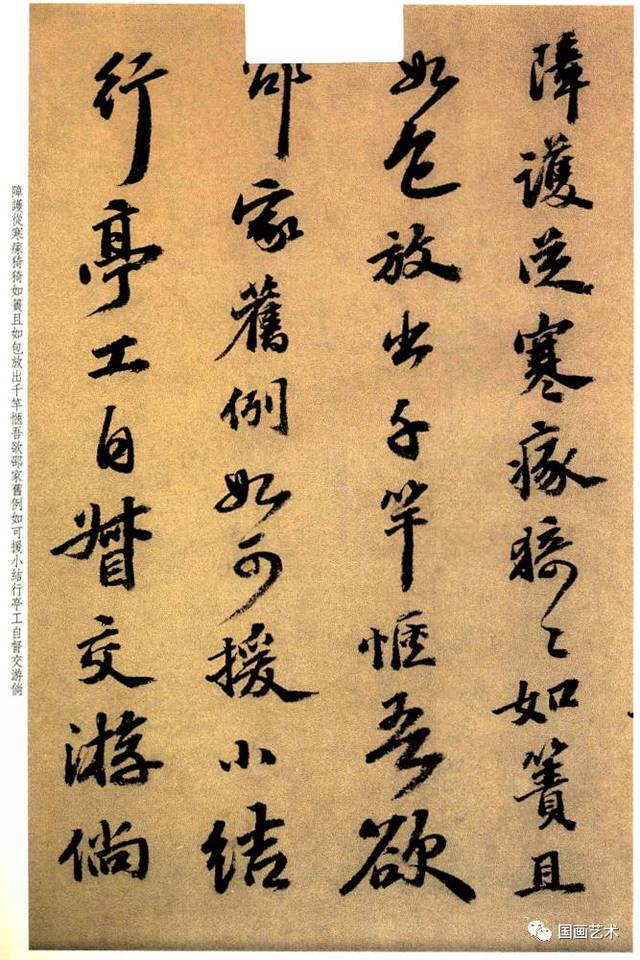 障護從寒瘃猗〻如簀且
如包放出千竿愜吾欲
邵家舊例如可援小結
行亭工自督交游倘
障護從寒瘃猗猗如簀且如包放出千竿愜吾欲邵家舊例如可援小結行亭工自督交游倘
国画艺术